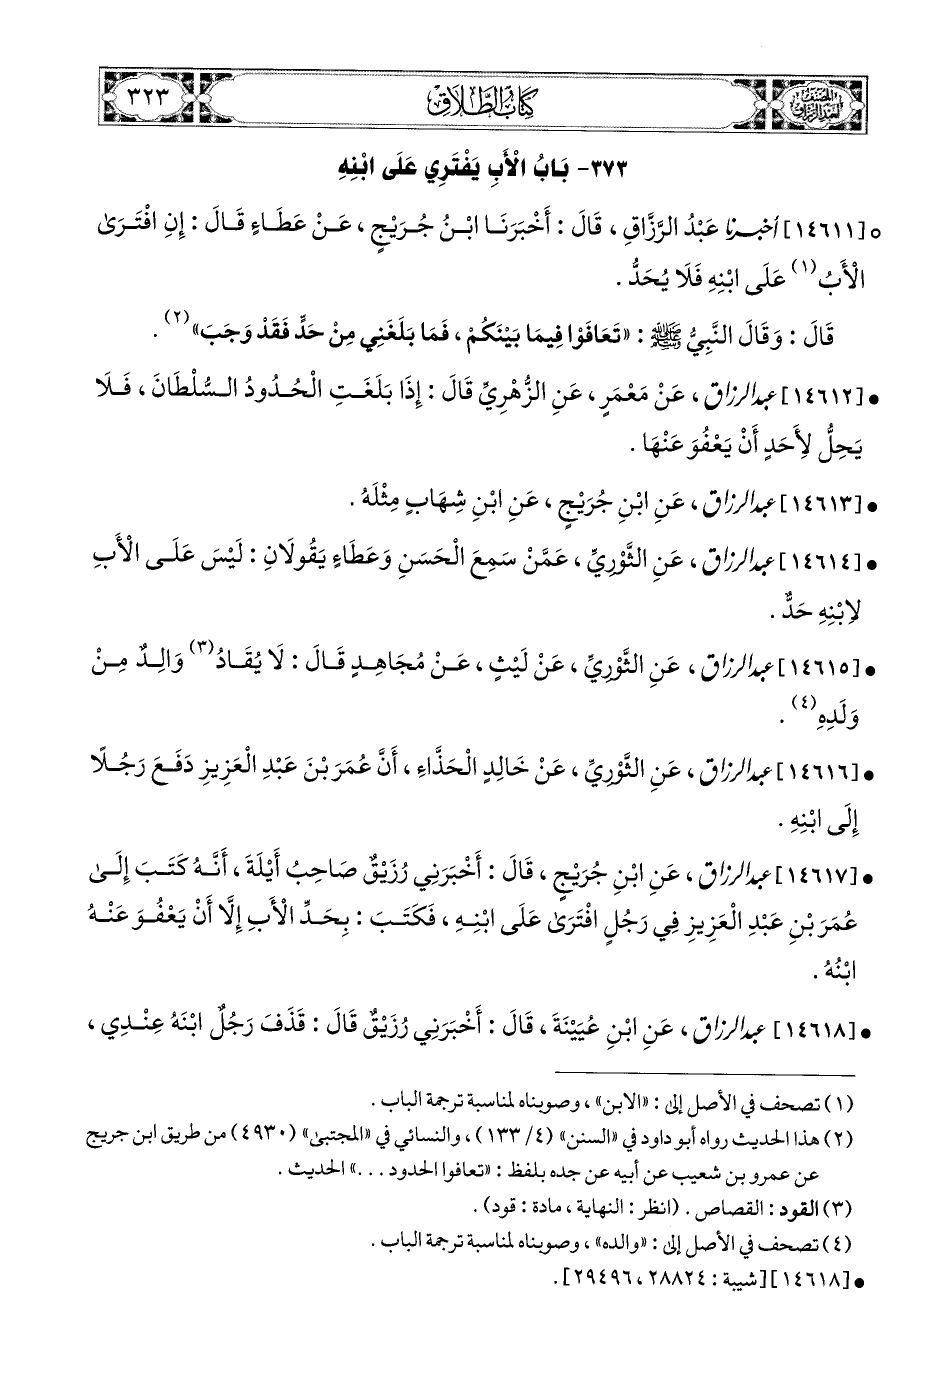 المصنف لعبد الرزاق
كتاب الطلاق
٣٢٣
٣٧٣- بَابُ الْأَبِ يَفْتَرِي عَلَى ابْنِهِ
○ [١٤٦١١] أخبرنا عَبْدُ الرَّزَّاقِ ، قَالَ : أَخْبَرَنَا ابْنُ جُرَيْجٍ ، عَنْ عَطَاءٍ قَالَ : إِنِ افْتَرَىٰ
الْأَبُ(١) عَلَى ابْنِهِ فَلَا يُحَدُّ .
قَالَ : وَقَالَ النَّبِيُّ ﷺ : «تَعَافَوْا فِيمَا بَيْنَكُمْ ، فَمَا بَلَغَنِي مِنْ حَدٍّ فَقَدْ وَجَبَ»(٢) .
• [١٤٦١٢] عبد الرزاق ، عَنْ مَعْمَرٍ ، عَنِ الزُّهْرِيِّ قَالَ : إِذَا بَلَغَتِ الْحُدُودُ السُّلْطَانَ ، فَلَا
يَحِلُّ لِأَحَدٍ أَنْ يَعْفُوَ عَنْهَا .
• [١٤٦١٣] عبد الرزاق ، عَنِ ابْنِ جُرَيْجٍ ، عَنِ ابْنِ شِهَابٍ مِثْلَهُ .
• [١٤٦١٤] عبد الرزاق ، عَنِ الثَّوْرِيِّ ، عَمَّنْ سَمِعَ الْحَسَنَ وَعَطَاءً يَقُولَانِ : لَيْسَ عَلَى الْأَبِ
لِابْنِهِ حَدٌّ .
• [١٤٦١٥] عبد الرزاق ، عَنِ الثَّوْرِيِّ ، عَنْ لَيْثٍ ، عَنْ مُجَاهِدٍ قَالَ : لَا يُقَادُ(٣) وَالِدٌ مِنْ
وَلَدِهِ(٤) .
• [١٤٦١٦] عبد الرزاق ، عَنِ الثَّوْرِيِّ ، عَنْ خَالِدٍ الْحَذَّاءِ ، أَنَّ عُمَرَ بْنَ عَبْدِ الْعَزِيزِ دَفَعَ رَجُلًا
إِلَى ابْنِهِ .
• [١٤٦١٧] عبد الرزاق ، عَنِ ابْنِ جُرَيْجٍ ، قَالَ : أَخْبَرَنِي رُزَيْقٌ صَاحِبُ أَيْلَةَ ، أَنَّهُ كَتَبَ إِلَىٰ
عُمَرَ بْنِ عَبْدِ الْعَزِيزِ فِي رَجُلٍ افْتَرَىٰ عَلَى ابْنِهِ ، فَكَتَبَ : بِحَدِّ الْأَبِ إِلَّا أَنْ يَعْفُوَ عَنْهُ
ابْنُهُ .
• [١٤٦١٨] عبد الرزاق ، عَنِ ابْنِ عُيَيْنَةَ ، قَالَ : أَخْبَرَنِي رُزَيْقٌ قَالَ : قَذَفَ رَجُلٌ ابْنَهُ عِنْدِي ،
(١) تصحف في الأصل إلى : «الابن» ، وصوبناه لمناسبة ترجمة الباب .
(٢) هذا الحديث رواه أبو داود في «السنن» (٤/ ١٣٣) ، والنسائي في «المجتبى» (٤٩٣٠) من طريق ابن جريج
عن عمرو بن شعيب عن أبيه عن جده بلفظ : «تعافوا الحدود . . .» الحديث .
(٣) القود : القصاص . (انظر : النهاية ، مادة : قود) .
(٤) تصحف في الأصل إلى : «والده» ، وصوبناه لمناسبة ترجمة الباب .
• [١٤٦١٨] [شيبة : ٢٨٨٢٤ ، ٢٩٤٩٦] .